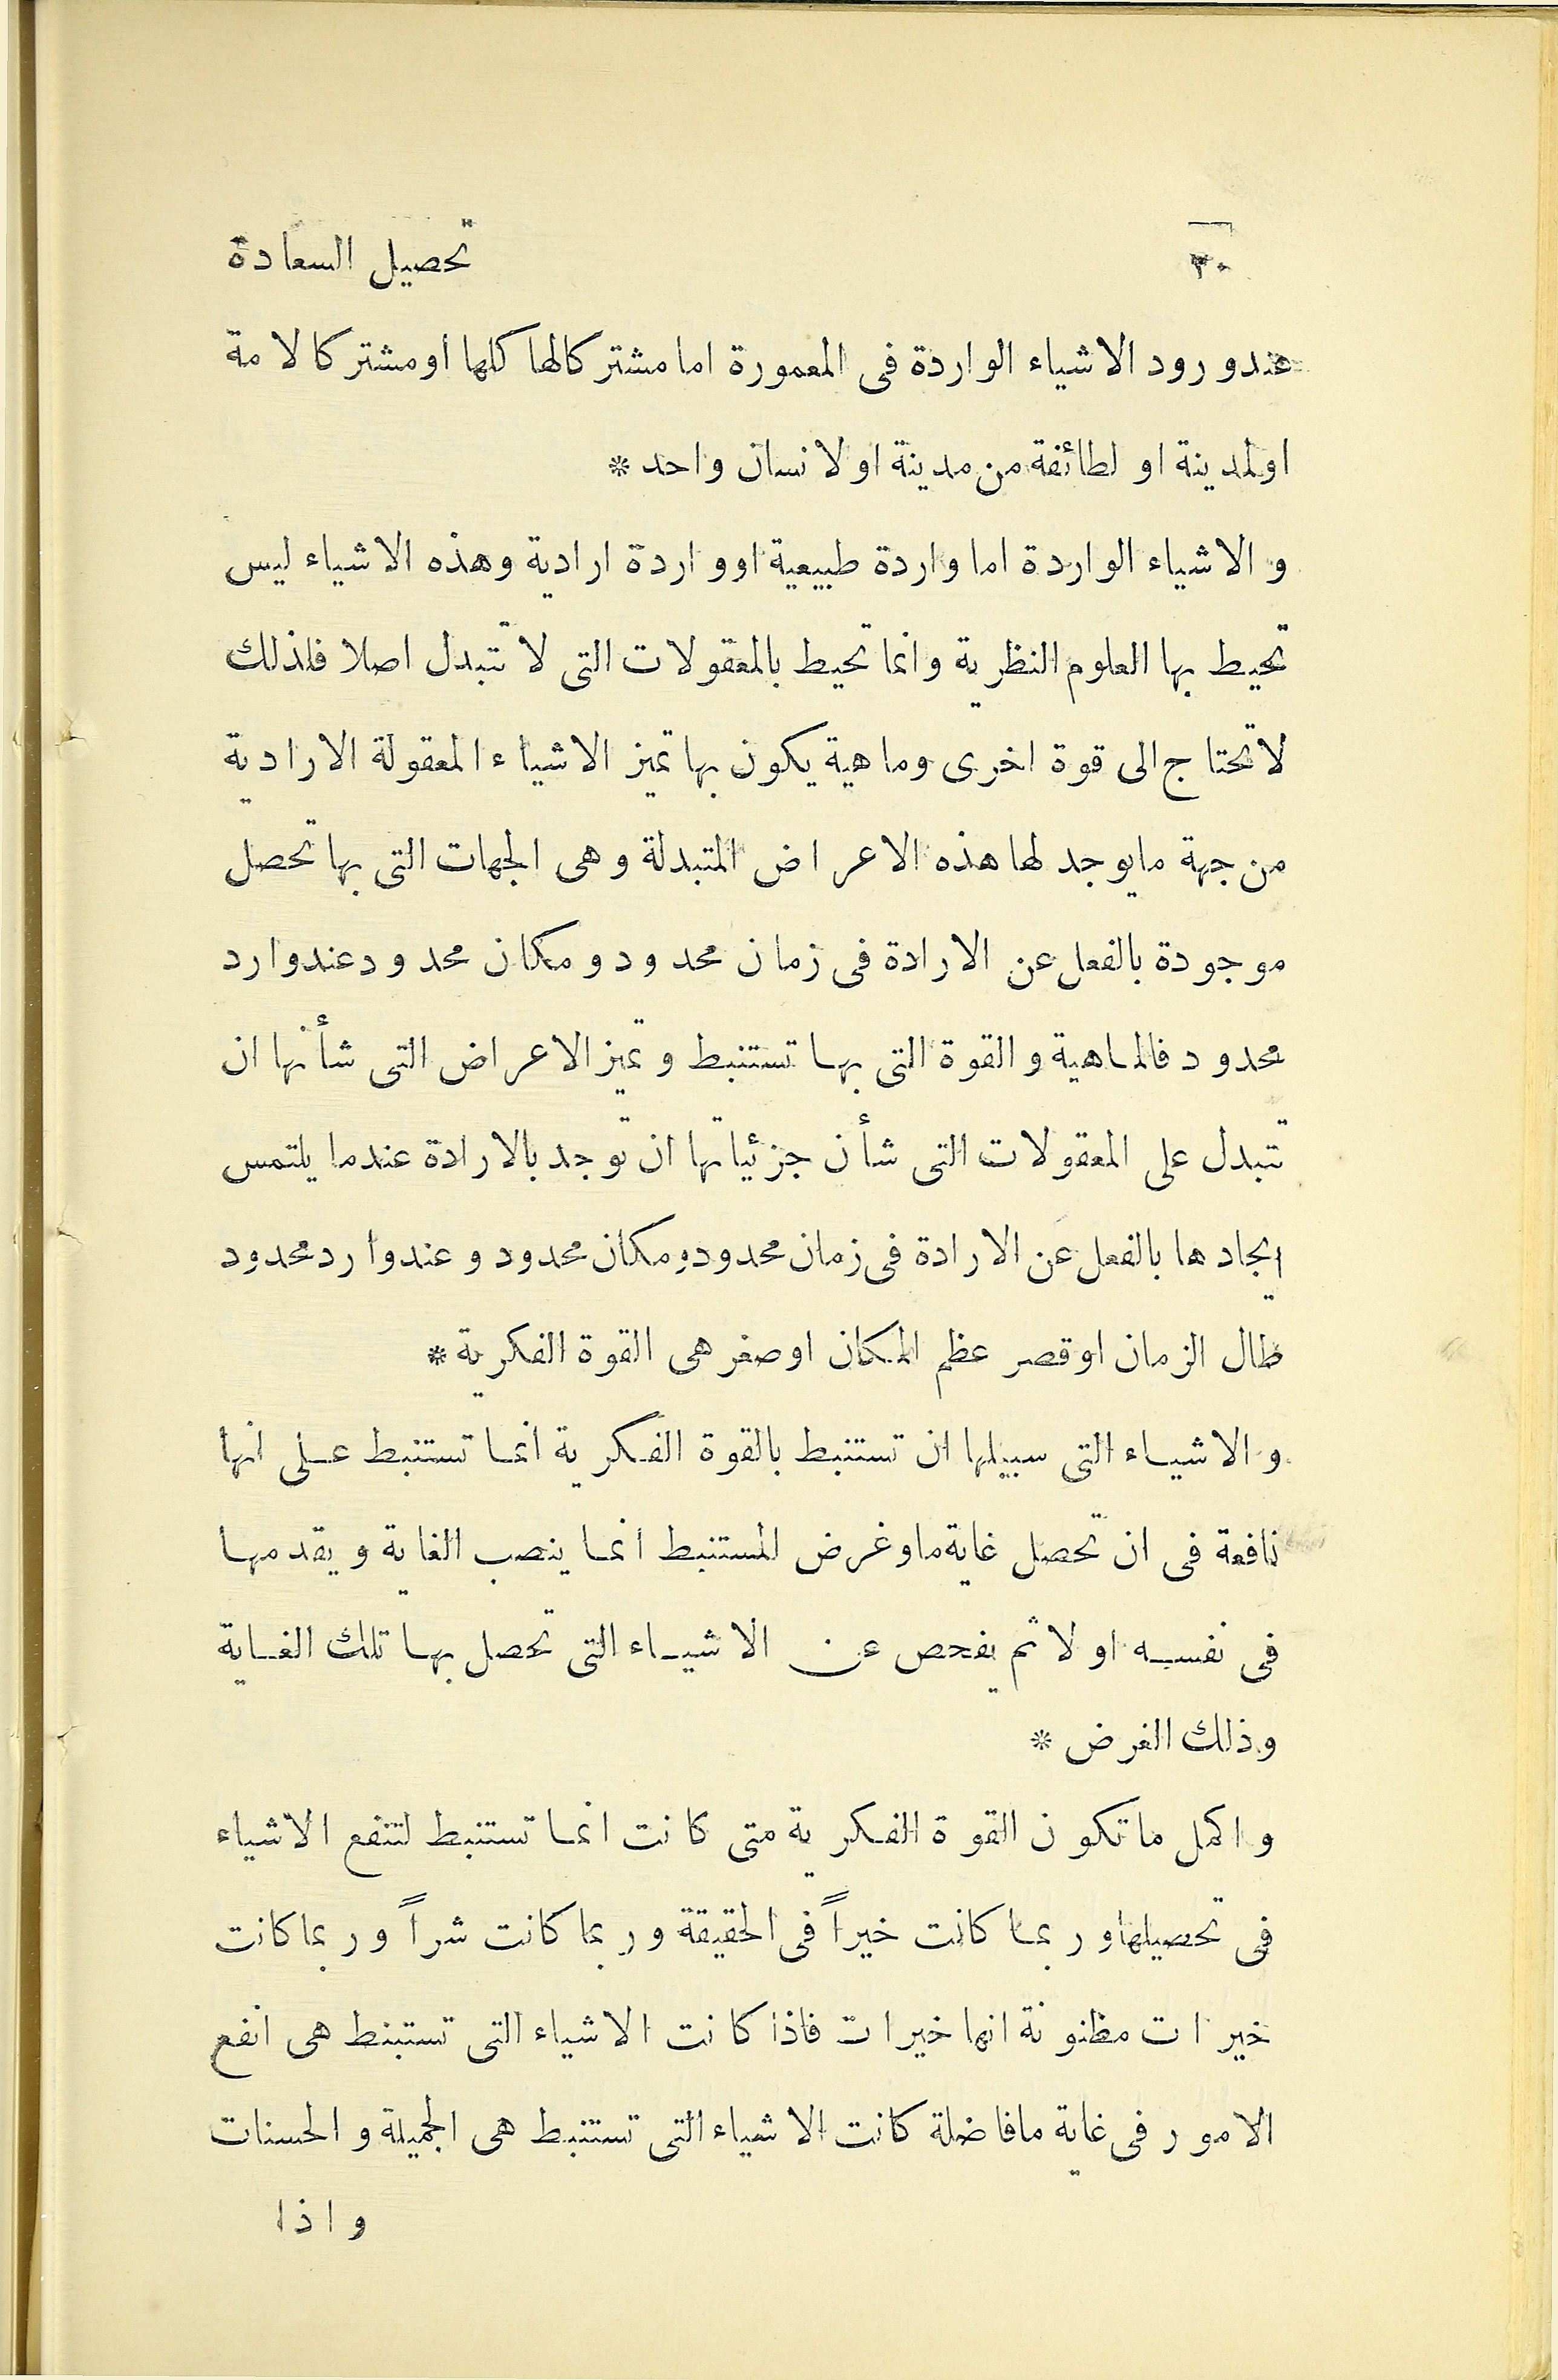 ٢٠ تحصيل السعادة
عند ورود الاشياء الواردة فى المعمورة اما مشتركا لها كلها او مشتركا لامة
او لمدينة او لطائفة من مدينة او لانسان واحد *
و الاشياء الواردة اما واردة طبيعية او واردة ارادية وهذه الاشياء ليس
تحيط بها العلوم النظرية وانما تحيط بالمعقولات التى لا تتبدل اصلا فلذلك
لا تحتاج الى قوة اخرى وماهية يكون بها تميز الاشياء المعقولة الارادية
من جهة ما يوجد لها هذه الاعراض المتبدلة وهى الجهات التى بها تحصل
موجودة بالفعل عن الارادة فى زمان محدود ومكان محدود عند وارد
محدود فالماهية و القوة التى بها تستنبط وتميز الاعراض التى شأنها ان
تتبدل على المعقولات التى شأن جزئياتها ان توجد بالارادة عند ما يلتمس
ايجادها بالفعل عن الارادة فى زمان محدود ومكان محدود وعند وارد محدود
طال الزمان او قصر عظم المكان او صغر هى القوة الفكرية *
و الاشياء التى سبيلها ان تستنبط بالقوة الفكرية انما تستنبط على انها
نافعة فى ان تحصل غاية ما وغرض المستنبط انما ينصب الغاية ويقدمها
فى نفسه اولا ثم يفحص عن الاشياء التى تحصل بها تلك الغاية
وذلك الغرض *
و اكمل ما تكون القوة الفكرية متى كانت انما تستنبط لتنفع الاشياء
فى تحصيلها وربما كانت خيراً فى الحقيقة وربما كانت شراً وربما كانت
خيرات مظنونة انها خيرات فاذا كانت الاشياء التى تستبنط هى انفع
الامور فى غاية ما فاضلة كانت الاشياء التى تستنبط هى الجميلة و الحسنات
واذا